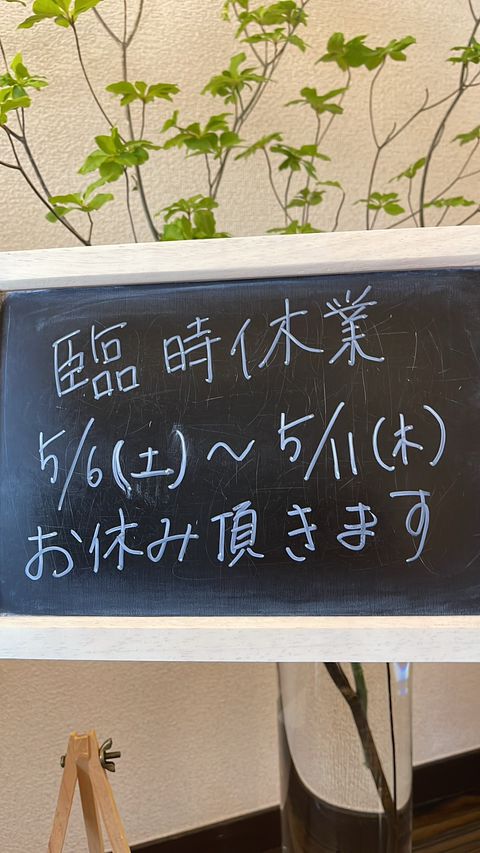 臨時休業
5/6(土)〜5/11(木)
お休み頂きます